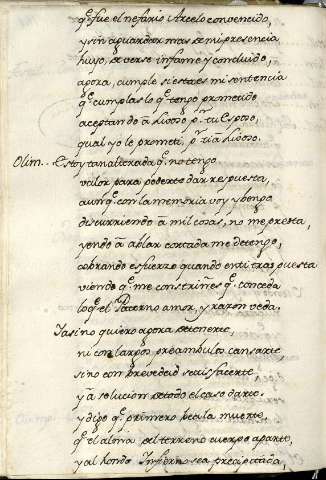 q̃ fue el nefario Arcelo convencido,
y sin aguardar mas de mi presencia
huyo, de verse infame y concluido,
agora, cumple si està es mi sentencia
q̃ cumplas lo q̃ tengo prometido
aceptando à Lidoro pr̃ tu Esposo,
qual yo le prometi, pr̃ ti à Lidoro.
Olim.. Estoy tan alterada q̃ no tengo
valor para poderte dar respuesta,
aunq̃ con la memoria voy y bengo
discurriendo à mil cosas, no me presta,
yendo à ablar cortada me detengo,
cobrando esfuerzo quando en ti tras puesta
viendo q̃ me constriñes q̃ conceda
loq̃ el Paterno amor, y razon veda.
Iasi no quiero agora detenerte,
ni con largos preambulos cansarte,
sino con brevedad satisfacerte
y à solucion de todo el caso darte.
y digo q̃ primero pecula muerte,
q̃ el alma del terreno cuerpo aparte,
y al hondo Infierno sea precipitada,